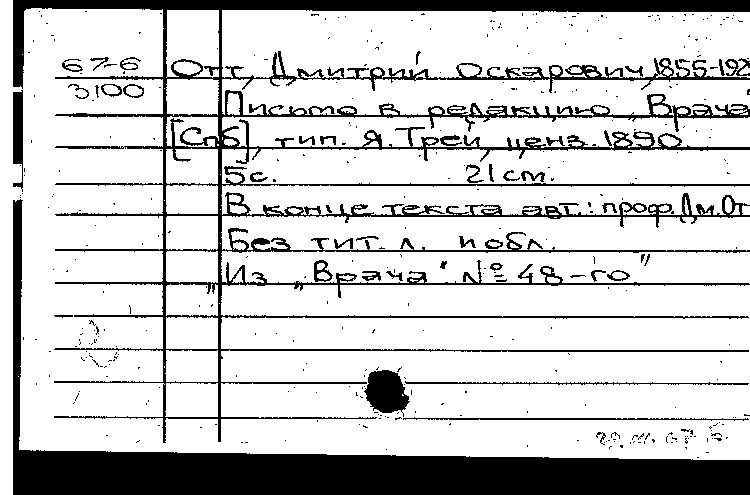 67-6 Отт, Дмитрий Оскарович, 1855-192
3100
Письмо в редакцию „Врача"
[Спб], тип. Я. Трей, ценз. 1890.
5с. 21 см.
В конце текста авт.: проф. Дм. От
Без тит. л. и обл.
„Из „Врача" № 48-го"
29.III.67